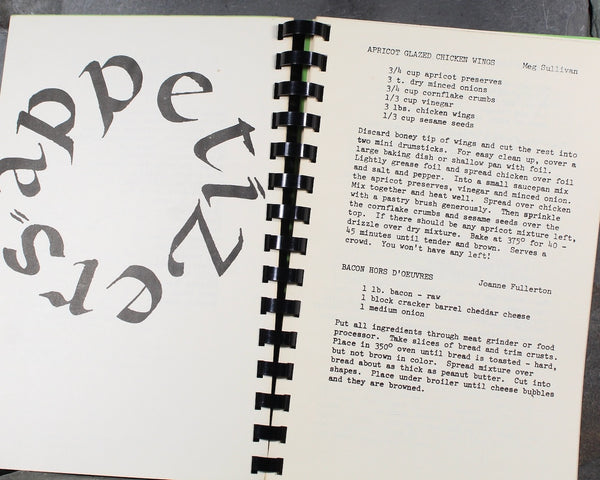 appetizers
APRICOT GLAZED CHICKEN WINGS Meg Sullivan
3/4 cup apricot preserves
3 t. dry minced onions
3/4 cup cornflake crumbs
1/3 cup vinegar
3 lbs. chicken wings
1/3 cup sesame seeds
Discard boney tip of wings and cut the rest into
two mini drumsticks. For easy clean up, cover a
large baking dish or shallow pan with foil.
Lightly grease foil and spread chicken over foil
and salt and pepper. Into a small saucepan mix
the apricot preserves, vinegar and minced onion.
Mix together and heat well. Spread over chicken
with a pastry brush generously. Then sprinkle
the cornflake crumbs and sesame seeds over the
top. If there should be any apricot mixture left,
drizzle over dry mixture. Bake at 375° for 40 -
45 minutes until tender and brown. Serves a
crowd. You won't have any left!
BACON HORS D'OEUVRES Joanne Fullerton
1 lb. bacon - raw
1 block cracker barrel cheddar cheese
1 medium onion
Put all ingredients through meat grinder or food
processor. Take slices of bread and trim crusts.
Place in 350° oven until bread is toasted - hard,
but not brown in color. Spread mixture over
bread about as thick as peanut butter. Cut into
shapes. Place under broiler until cheese bubbles
and they are browned.